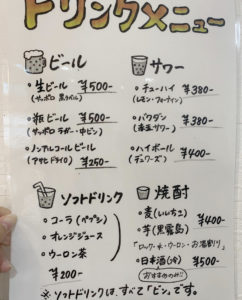 ドリンクメニュー
ビール
・生ビール ¥500-
(サッポロ 黒ラベル)
・瓶ビール ¥500-
(サッポロ ラガー・中ビン)
・ノンアルコールビール
(アサヒドライゼロ) ¥250-
サワー
・チューハイ ¥380-
(レモン・プレーン)
・バクダン ¥380-
(赤玉サワー)
・ハイボール ¥400-
(デュワーズ)
ソフトドリンク
・コーラ(ペプシ)
・オレンジジュース
・ウーロン茶
¥200-
焼酎
・麦(いいちこ)
・芋(黒霧島) ¥400-
「ロック・水・ウーロン・お湯割り」
・日本酒(冷) ¥500-
おすすめのお酒
※ソフトドリンクは、すべて「ビン」です。